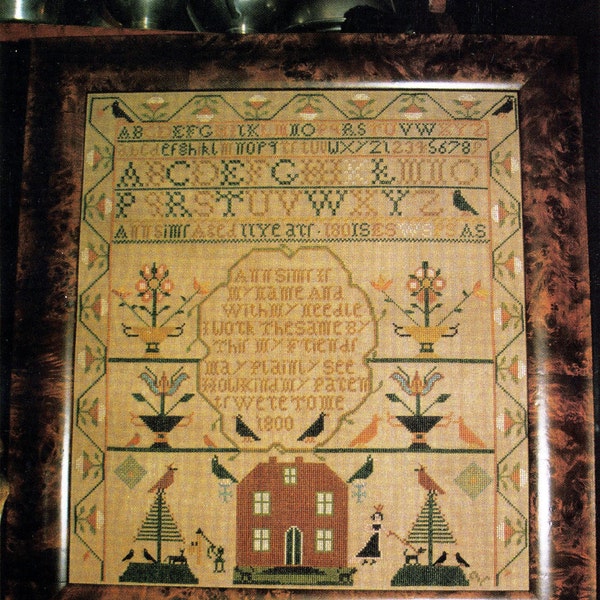 ABCDEFGHIKLMNOPQRSTUVWXYZ
abcdefghiklmnopqrstuvwxyz123456789
ABCDEFGHIKLMNO
PQRSTUVWXYZ
Ann sims Aged 11 years . 1801 SES WS PS AS
Ann sims is
my name And
With my needle
I Work The same By
This my Friends
may plainly see
How kind my Paren
ts Were To me
1800